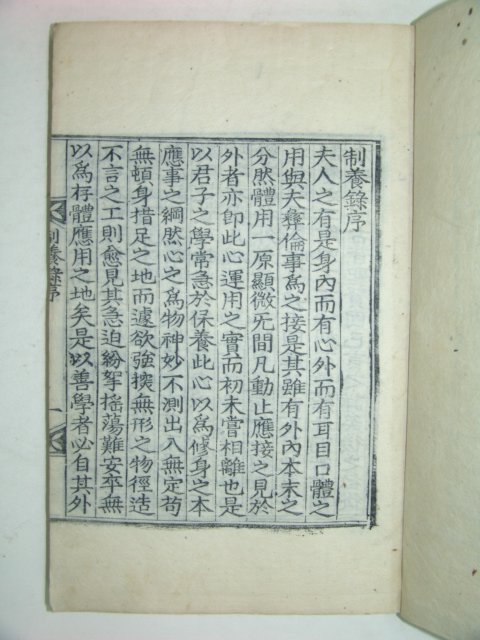 制養錄序
夫人之有是身內而有心外而有耳目口體之
用與夫彜倫事爲之接是其雖有外內本末之
分然體用一原顯微旡間凡動止應接之見於
外者亦卽此心運用之實而初未嘗相離也是
以君子之學常急於保養此心以爲修身之本
應事之綱然心之爲物神妙不測出入無定苟
無頓身措足之地而遽欲強撮無形之物徑造
不言之工則愈見其急迫紛挐搖蕩難安卒無
以爲存體應用之地矣是以善學者必自其外
制養錄序
一